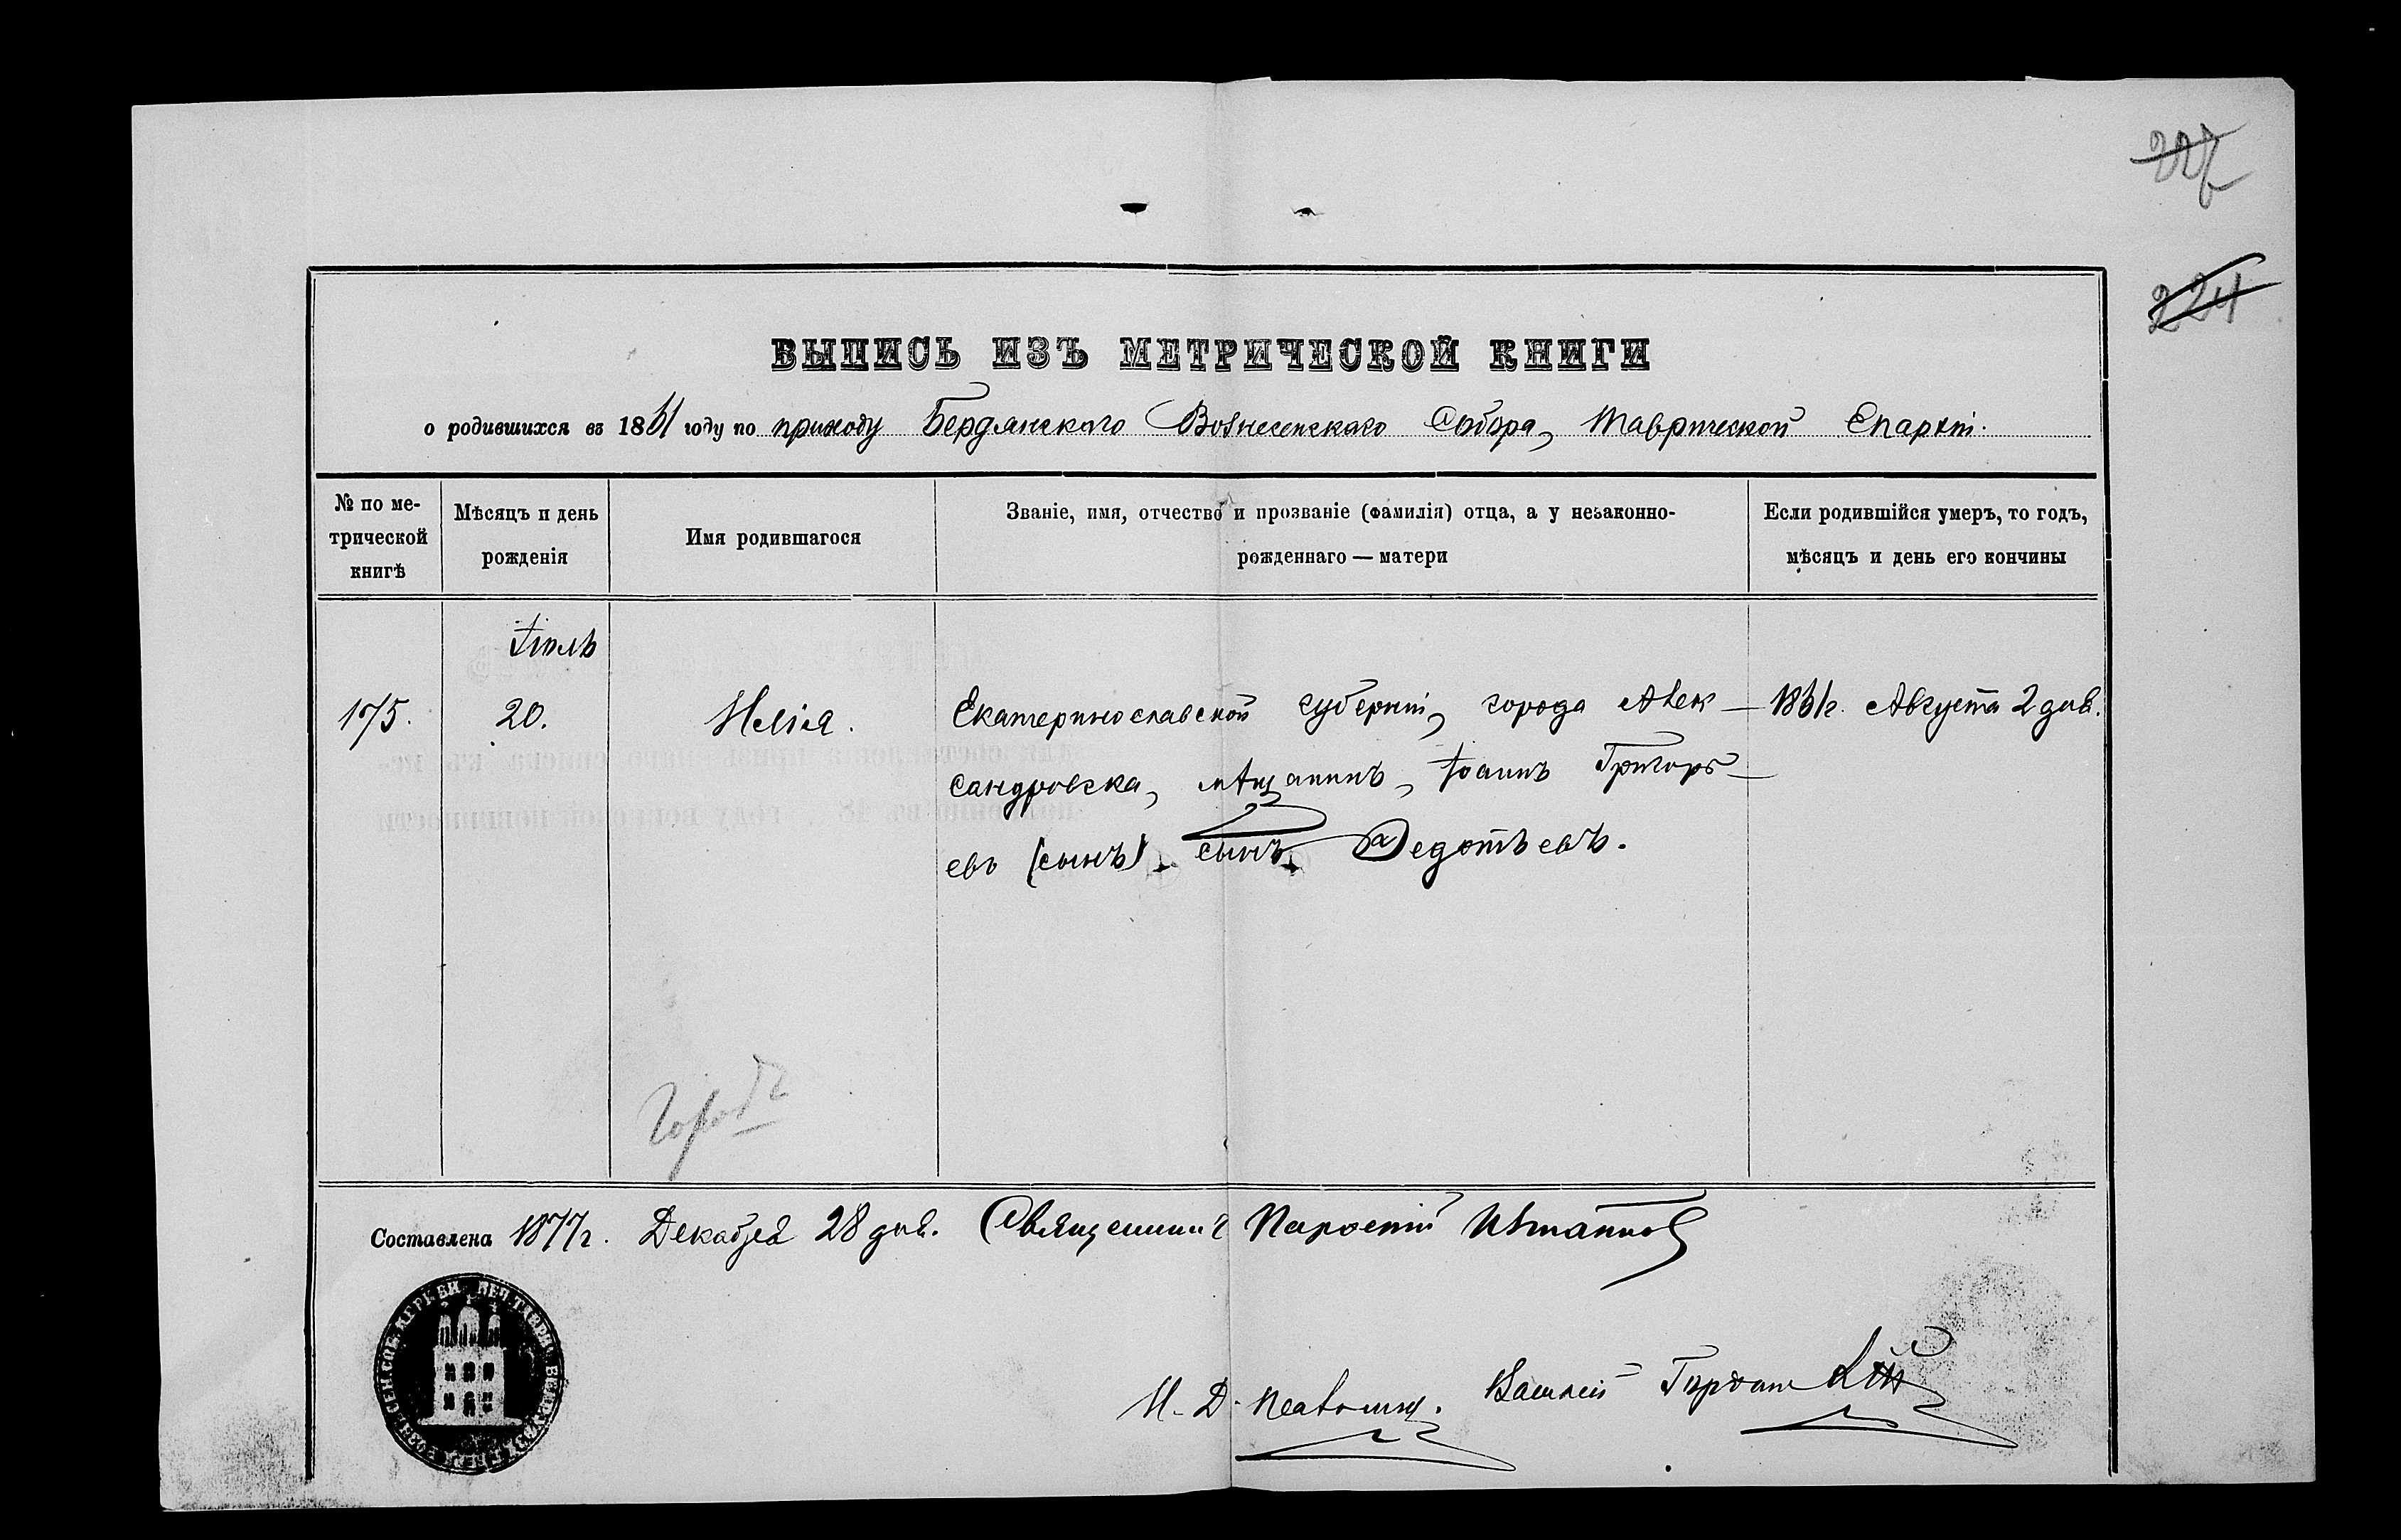 227
224
ВЫПИСЬ ИЗЪ МЕТРИЧЕСКОЙ КНИГИ
о родившихся въ 1861 году по приходу Бердянскаго Вознесенскаго Собора, Таврической Епархіи.
№ по ме-
трической
книгѣ
Мѣсяцъ и день
рожденія
Имя родившагося
Званіе, имя, отчество и прозваніе (фамилія) отца, а у незаконно-
рожденнаго — матери
Если родившійся умеръ, то годъ,
мѣсяцъ и день его кончины
Іюль
175.
20.
Илія.
Екатеринославской губерніи, города Алек-
сандровска, мѣщанинъ, Іоаннъ Григорь-
евъ (сынъ) сынъ Федотьевъ.
1861г. Августа 2 дня.
Составлена 1877г. Декабря 28 дня. Священникъ
И. Д. Псаломщ. Василій